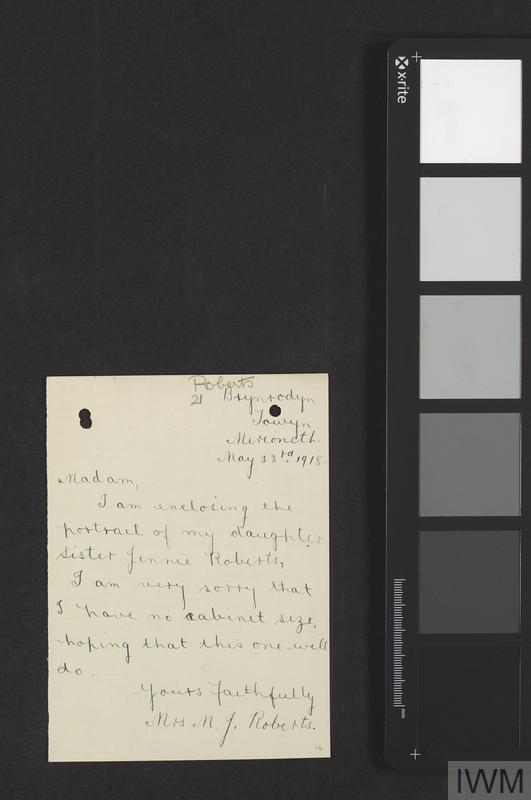 Roberts
21 Brynrodyn
Towyn
Merioneth.
May 23rd. 1918.
Madam,
I am enclosing the
portrait of my daughter
Sister Jennie Roberts,
I am very sorry that
I have no cabinet size,
hoping that this one will
do.
Yours faithfully
Mrs M J. Roberts.
14
x-rite
mm
IWM